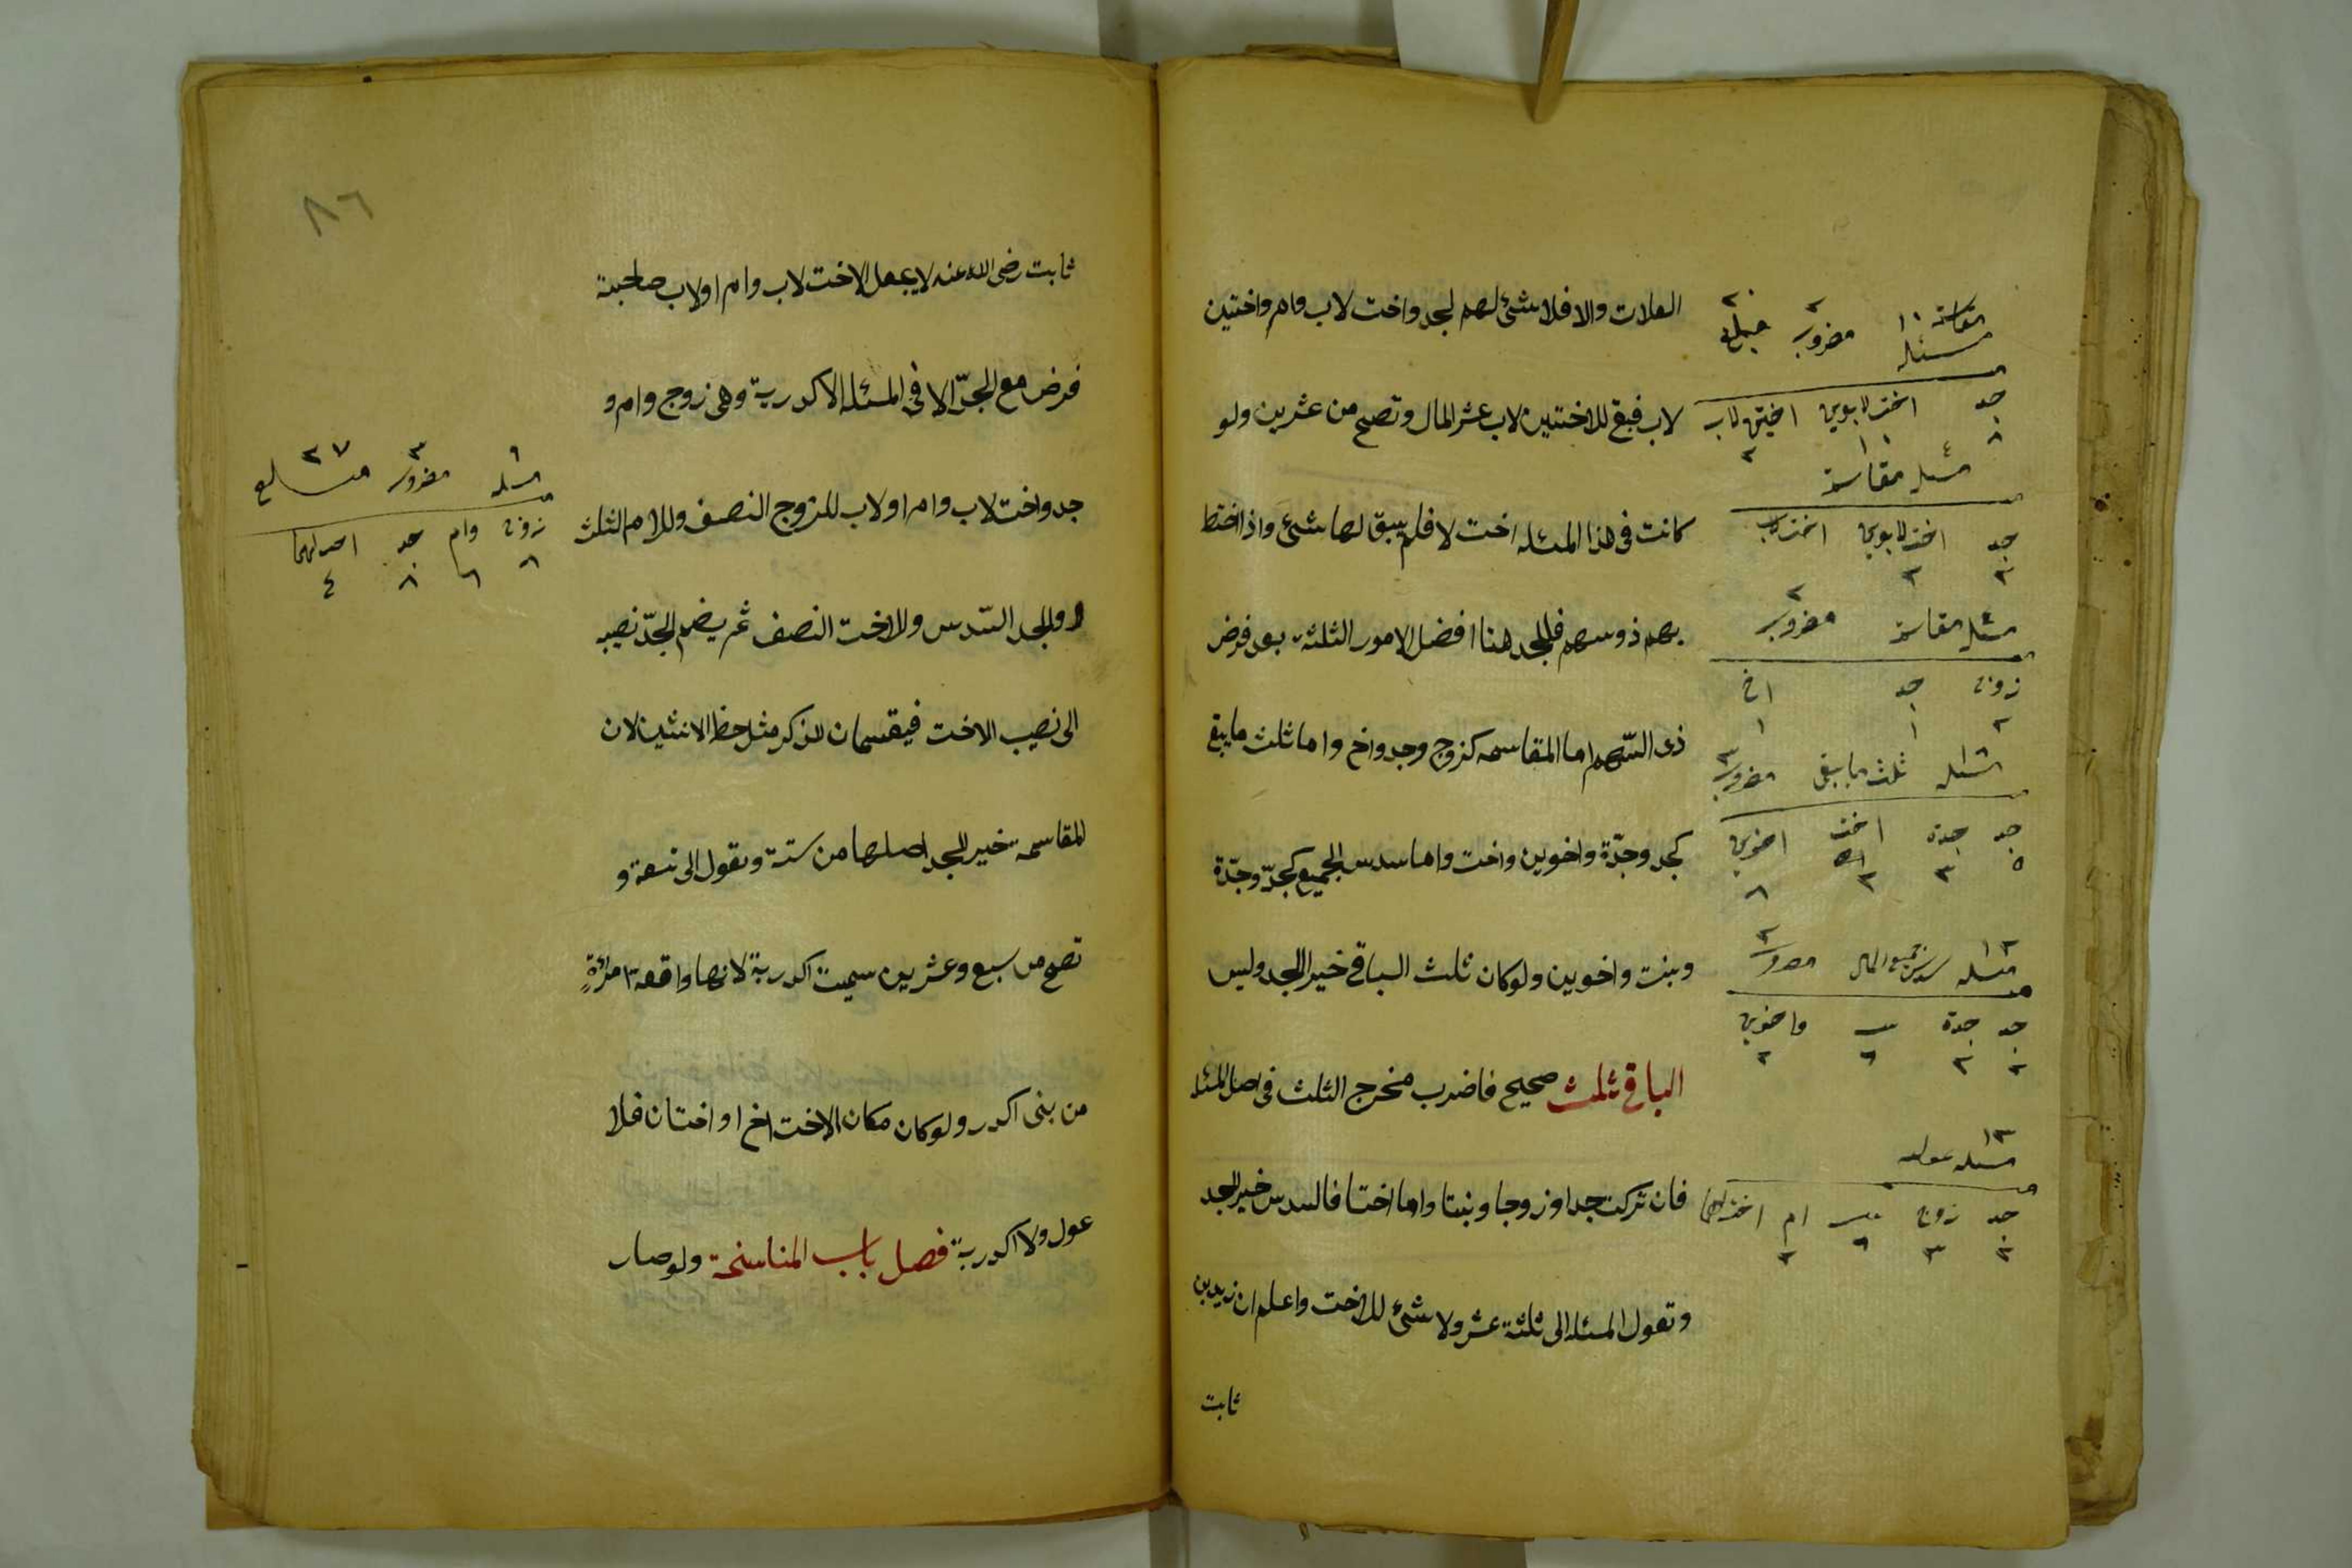 العلات والا فلا شئ لهم لجد واخت لاب وام واختين
لاب فبقى للاختين لاب عشر المال وتصح من عشرين ولو
كانت فى هذا المسئله اخت لا فلم يبق لها شئ واذا اختط
بهم ذو سهم فللجد هنا افضل الامور الثلثة بعد فرض
ذى السّهم اما المقاسمه كزوج وجد واخ واما ثلث ما يبقى
كجد وجدّة واخوين واخت واما سدس الجميع كجدّ وجدّة
وبنت واخوين ولو كان ثلث الباقى خير اللجد وليس
الباقى ثلث صحيح فاضرب مخرج الثلث فى اصل المسئله
فان تركت جدا وزوجا وبنتا واما اختا فالسدس خير للجد
وتعول المسئله الى ثلثة عشر ولا شئ للاخت واعلم ان زيد بن
ثابت
مقاسمة
مسئله ١٠ مضروب ٢ ٢٠
جد اخت لابوين اختين لاب
٨ ١٠ ٢
مسئله مقاسمة
جد اخت لابوين اخت لاب
٢ ٢
مسئله مقاسمة مضروب ٢
زوج جد اخ
٢ ١ ١
مسئله ثلث ما يبقى مضروب ٣
جد جدة اخت اخوين
٥ ٣ ٢ ٨
١٢
مسئله سدس جميع المال
جد جدة واخوين
٢ ٢ ٦ ٢
١٣
مسئله عوليه
جد زوج بنت ام اخت
٢ ٣ ٦ ٢
٨٦
ثابت رضى الله عنه لا يجعل الاخت لاب وام او لاب صاحبة
فرض مع الجدّ الا فى المسئله الاكدرية وهى زوج وام و
جد واخت لاب وام او لاب للزوج النصف وللام الثلث
وللجد السّدس وللاخت النصف ثم يضم الجدّ نصيبه
الى نصيب الاخت فيقتسمان للذكر مثل حظ الانثيين لان
المقاسمة خير للجد اصلها من ستة وتعول الى تسعة و
تصح من سبع وعشرين سميت اكدرية لانها واقعة امراةٍ
من بنى اكدر ولو كان مكان الاخت اخ او اختان فلا
عول ولا اكدرية فصل باب المناسخة ولو صار
٩ ٣ ٢٧
مسئله مضروب
زوج وام جد
٩ ٦ ٨ ٤